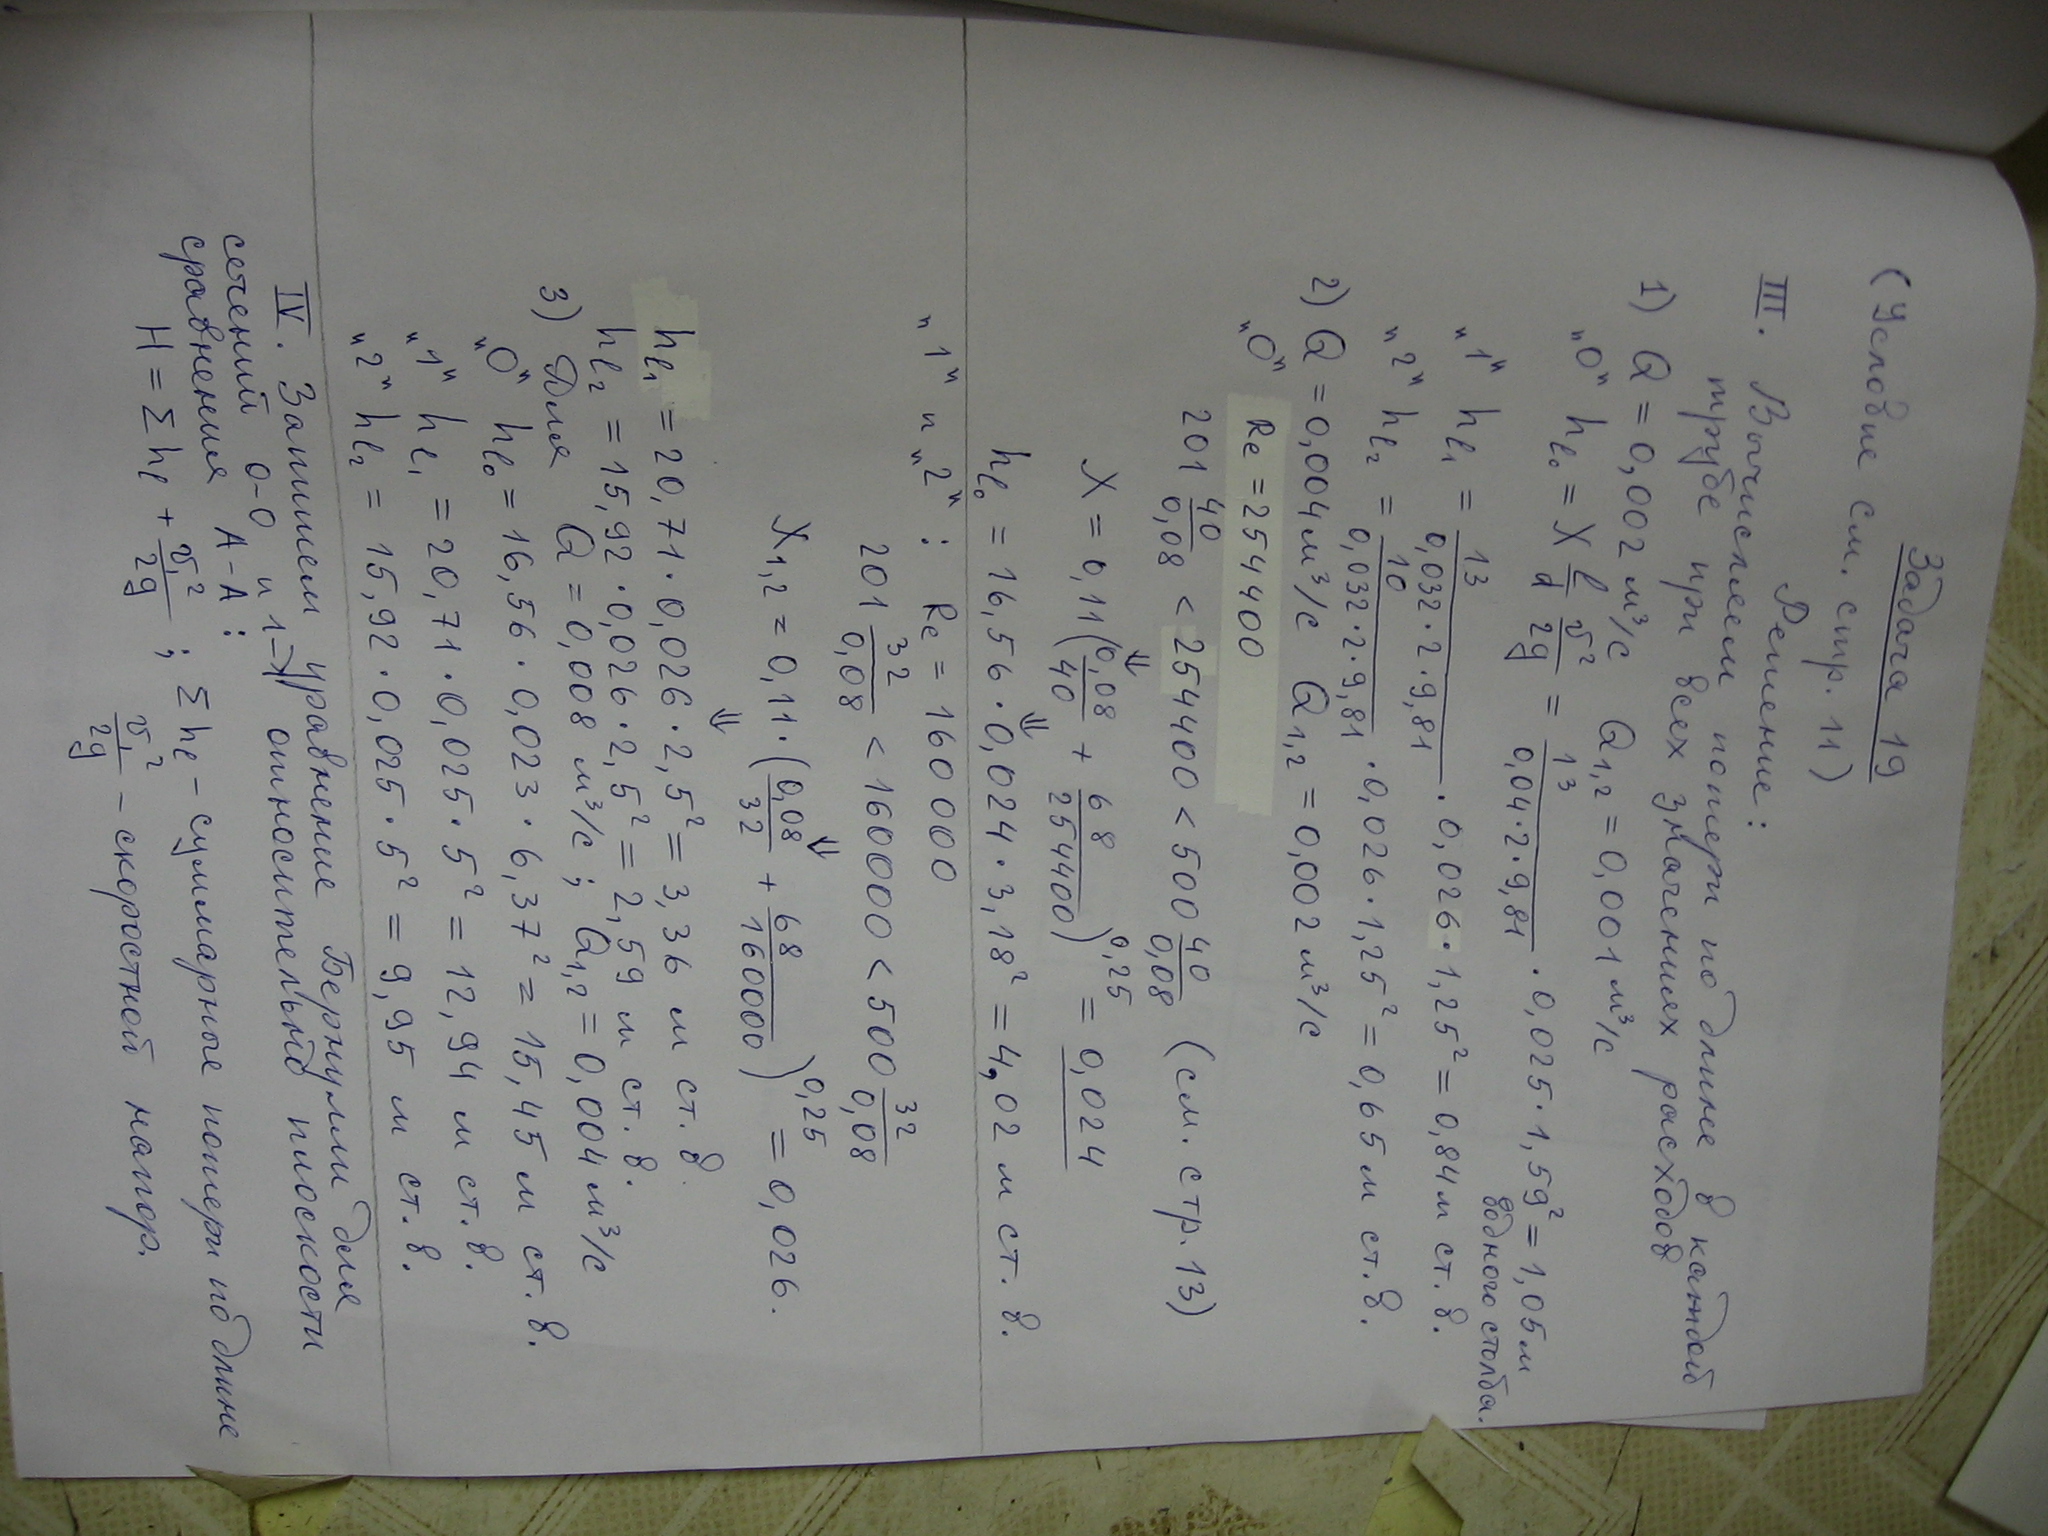 Задача 19
(Условие см. стр. 11)
Решение:
III. Вычислим потери по длине в каждой
трубе при всех значениях расходов
1) Q = 0,002 м³/с Q₁,₂ = 0,001 м³/с
„0" hℓ₀ = X ℓ/d v²/2g = 13/(0,04·2·9,81) · 0,025·1,59² = 1,05 м
водного столба.
„1" hℓ₁ = 13/(0,032·2·9,81) · 0,026·1,25² = 0,84 м ст. в.
„2" hℓ₂ = 10/(0,032·2·9,81) · 0,026·1,25² = 0,65 м ст. в.
2) Q = 0,004 м³/с Q₁,₂ = 0,002 м³/с
„0" Re = 254400
201 40/0,08 < 254400 < 500 40/0,08 (см. стр. 13)
⇓
X = 0,11(0,08/40 + 68/254400)^0,25 = 0,024
⇓
hℓ₀ = 16,56 · 0,024 · 3,18² = 4,02 м ст. в.
„1" и „2" : Re = 160000
201 32/0,08 < 160000 < 500 32/0,08
⇓
X₁,₂ = 0,11·(0,08/32 + 68/160000)^0,25 = 0,026.
⇓
hℓ₁ = 20,71 · 0,026 · 2,5² = 3,36 м ст. в.
hℓ₂ = 15,92 · 0,026 · 2,5² = 2,59 м ст. в.
3) Для Q = 0,008 м³/с ; Q₁,₂ = 0,004 м³/с
„0" hℓ₀ = 16,56 · 0,023 · 6,37² = 15,45 м ст. в.
„1" hℓ₁ = 20,71 · 0,025 · 5² = 12,94 м ст. в.
„2" hℓ₂ = 15,92 · 0,025 · 5² = 9,95 м ст. в.
IV. Запишем уравнение Бернулли для
сечений 0-0 и 1-1 относительно плоскости
сравнения А-А :
H = Σhℓ + v₁²/2g ; Σhℓ - суммарные потери по длине
v₁²/2g - скоростной напор.